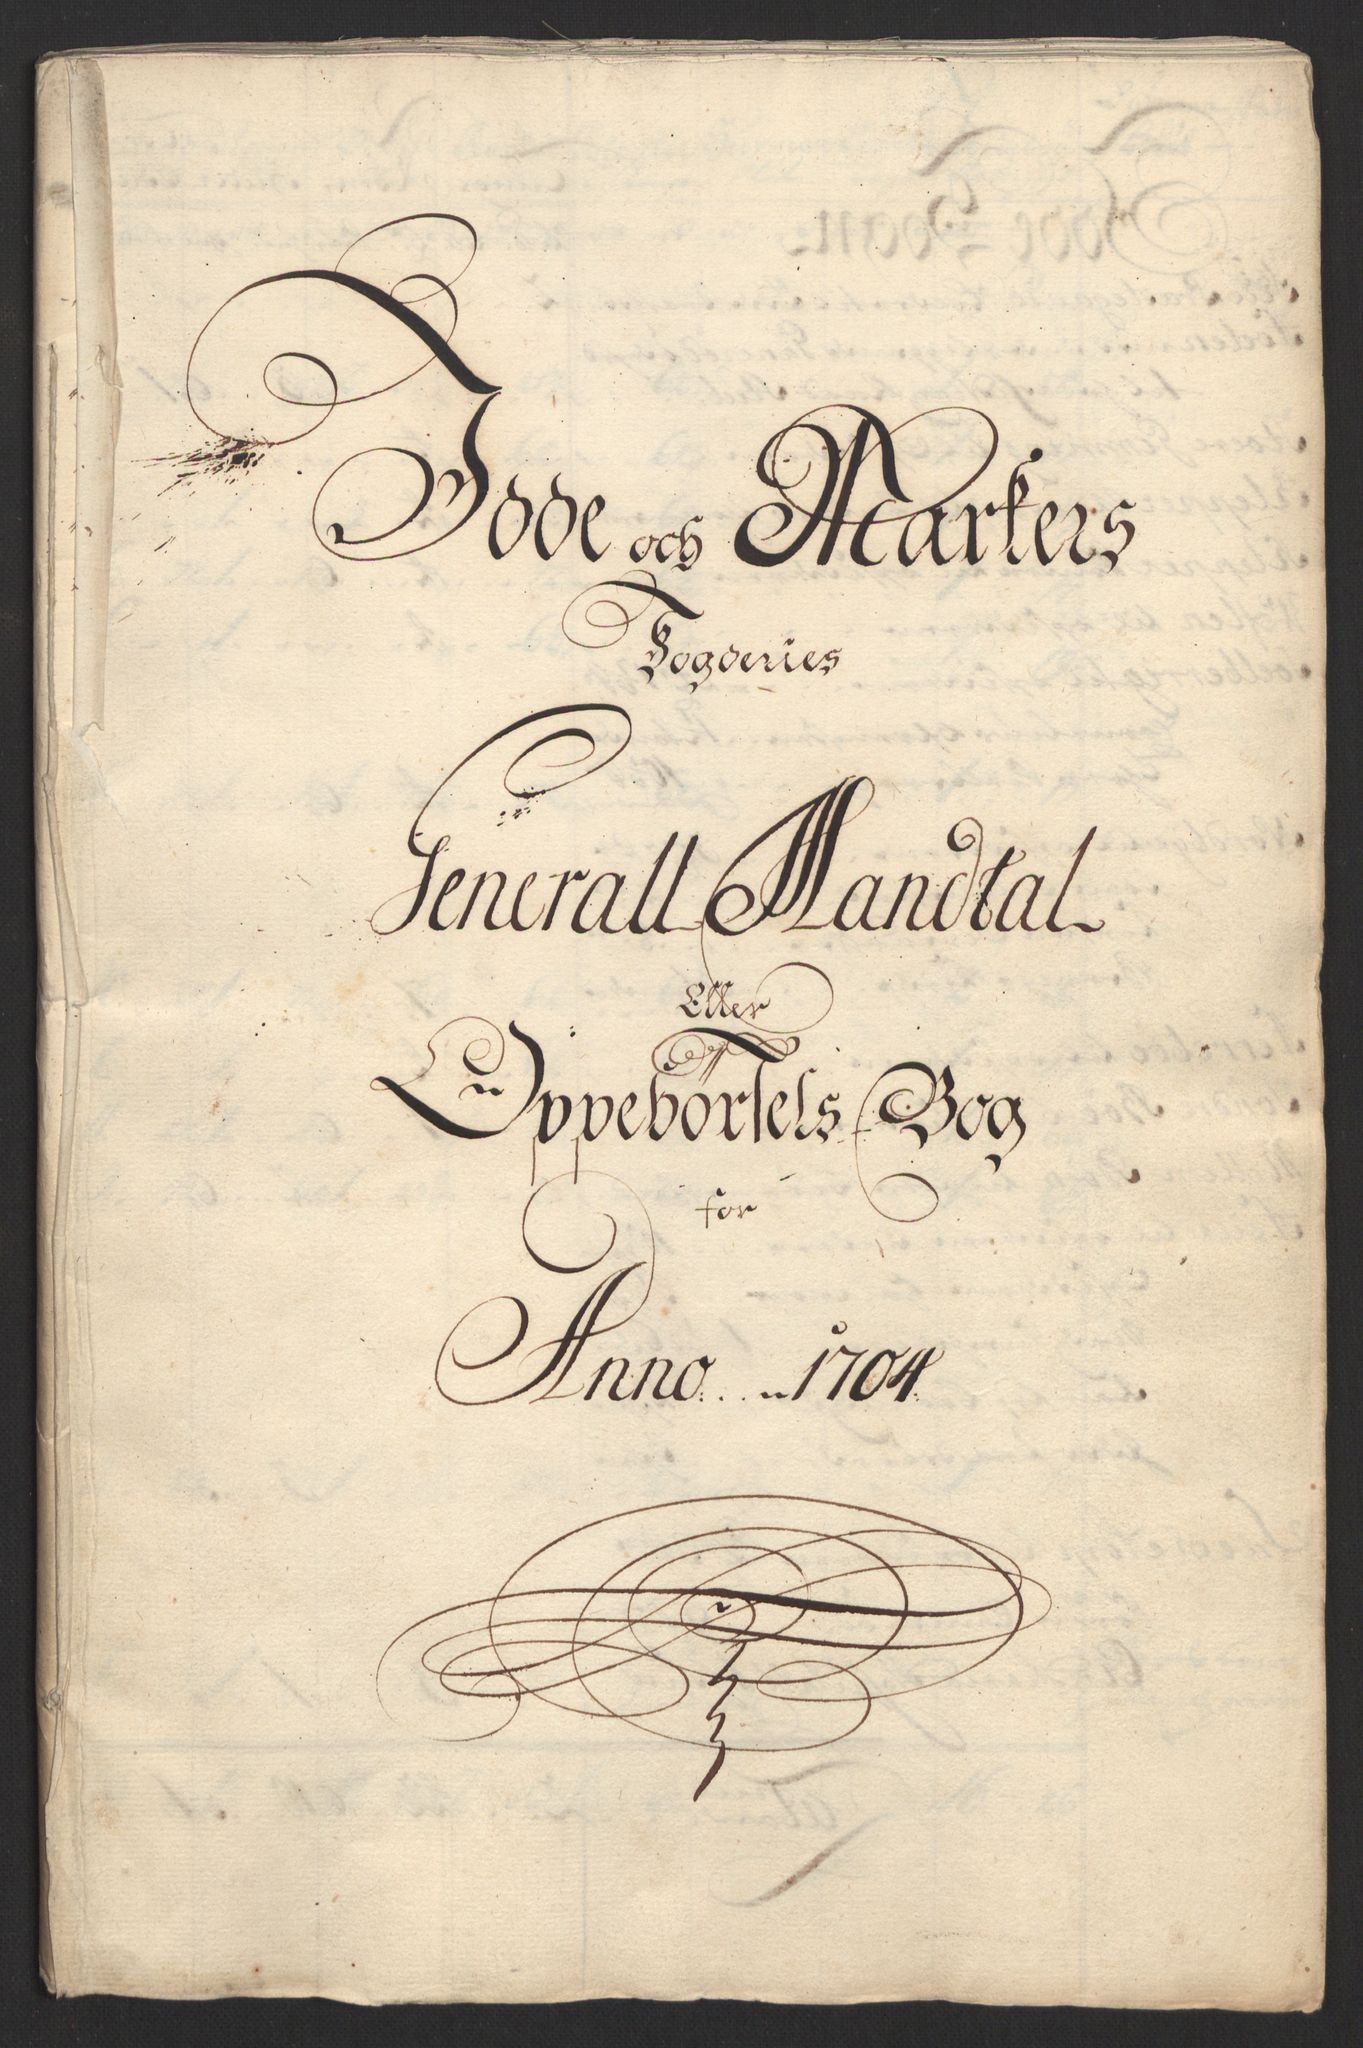 Idde och Markers
Fogderies
Generall Mandtal
Eller
Oppebørsels Bog
for
Anno 1704